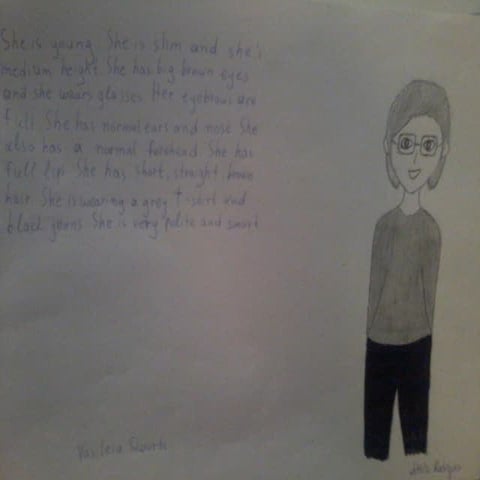 She is young. She is slim and she's
medium height. She has big brown eyes
and she wears glasses. Her eyebrows are
full. She has normal ears and nose. She
also has a normal forehead. She has
full lips. She has short, straight, brown
hair. She is wearing a grey t-shirt and
black jeans. She is very polite and smart